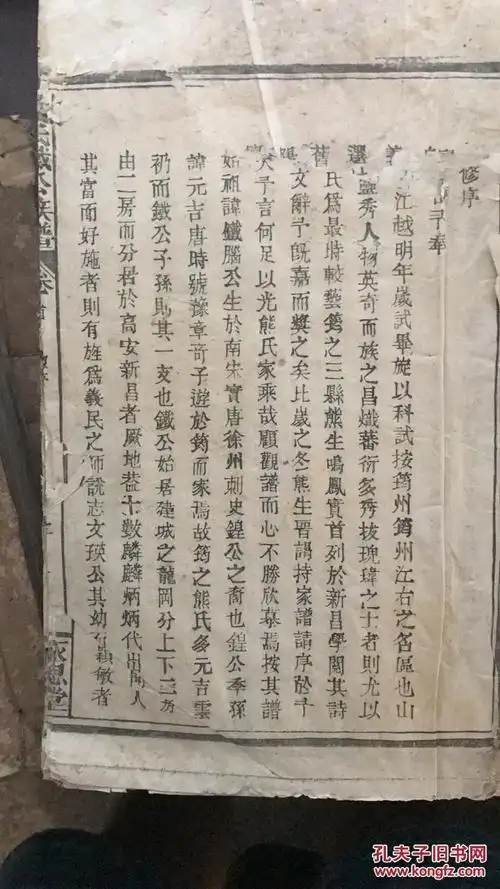 修序
予奉
江越明年歲試畢旋以科試按筠州筠州江右之名區也山
靈秀人物英奇而族之昌熾蕃衍多秀拔瑰瑋之士者則尤以
氏爲最時較藝筠之三縣熊生鳴鳳實首列於新昌學閱其詩
文辭予旣嘉而奬之矣比歲之冬熊生晋謁持家譜請序於予
予言何足以光熊氏家乘哉顧觀譜而心不勝欣慕焉按其譜
始祖諱鐵腦公生於南宋實唐徐州刺史鍠公之裔也鍠公季孫
諱元吉唐時號豫章奇子遊於筠而家焉故筠之熊氏多元吉雲
礽而鐵公子孫則其一支也鐵公始居建城之龍岡分上下二房
由二房而分居於高安新昌者厥地葢十數麟麟炳炳代出聞人
其富而好施者則有旌爲義民之師說志文瑛公其幼有穎敏者
氏鐵公族譜
永思堂
孔夫子旧书网
www.kongfz.com